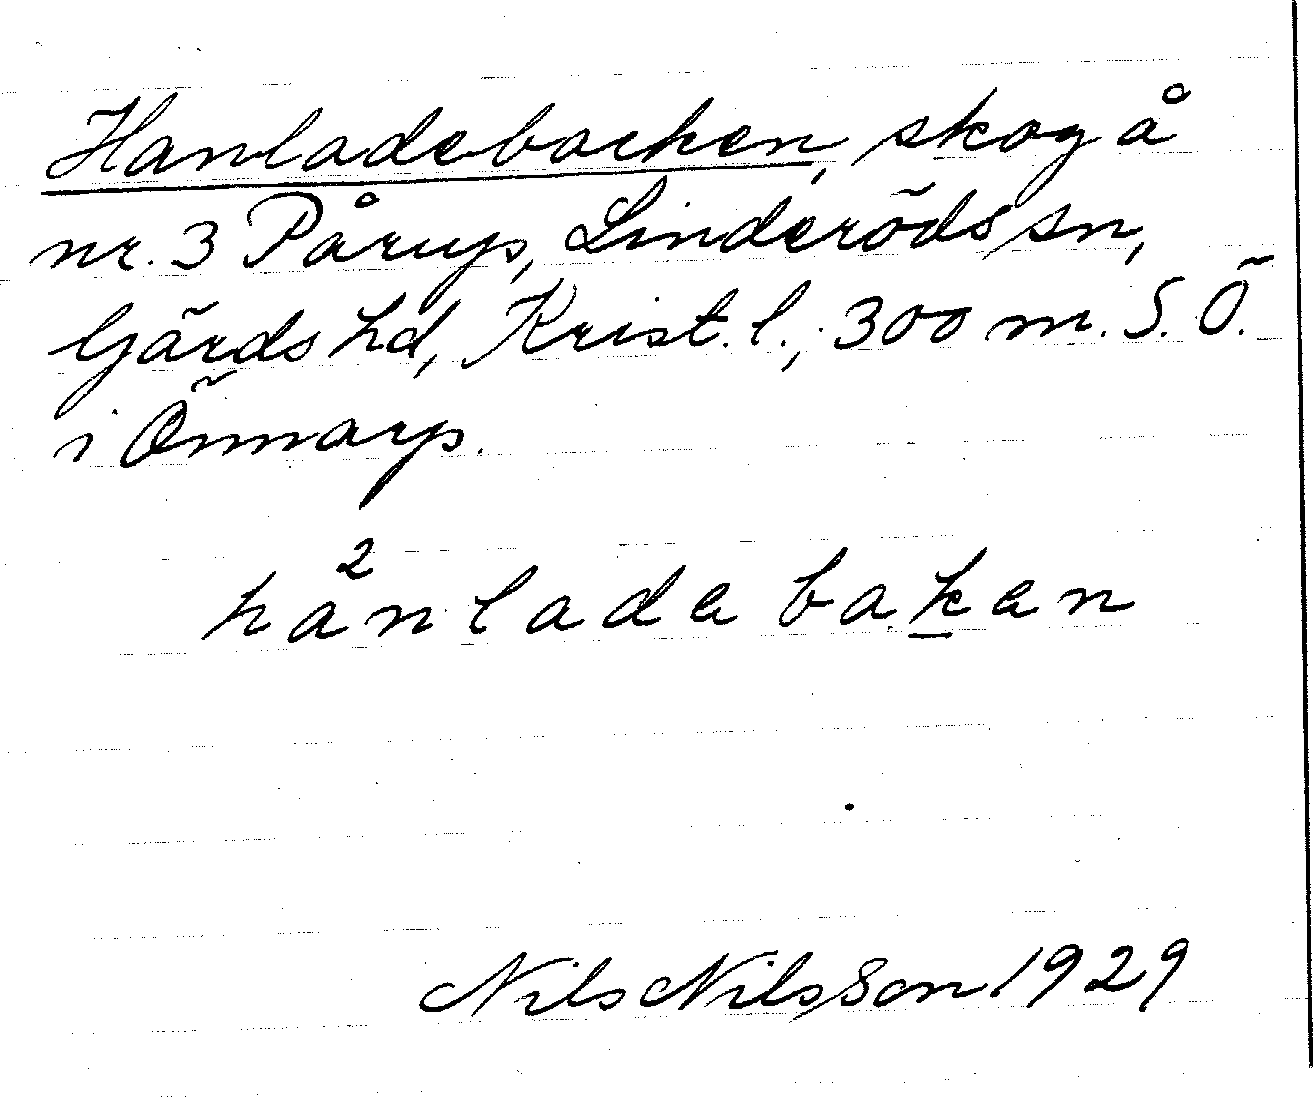 Hanladebacken, skog å
nr. 3 Pårup, Linderöds sn,
Gärds hd, Krist. l.; 300 m. S. Ö.
i Önnarp.
ha²nladebaken
Nils Nilsson 1929